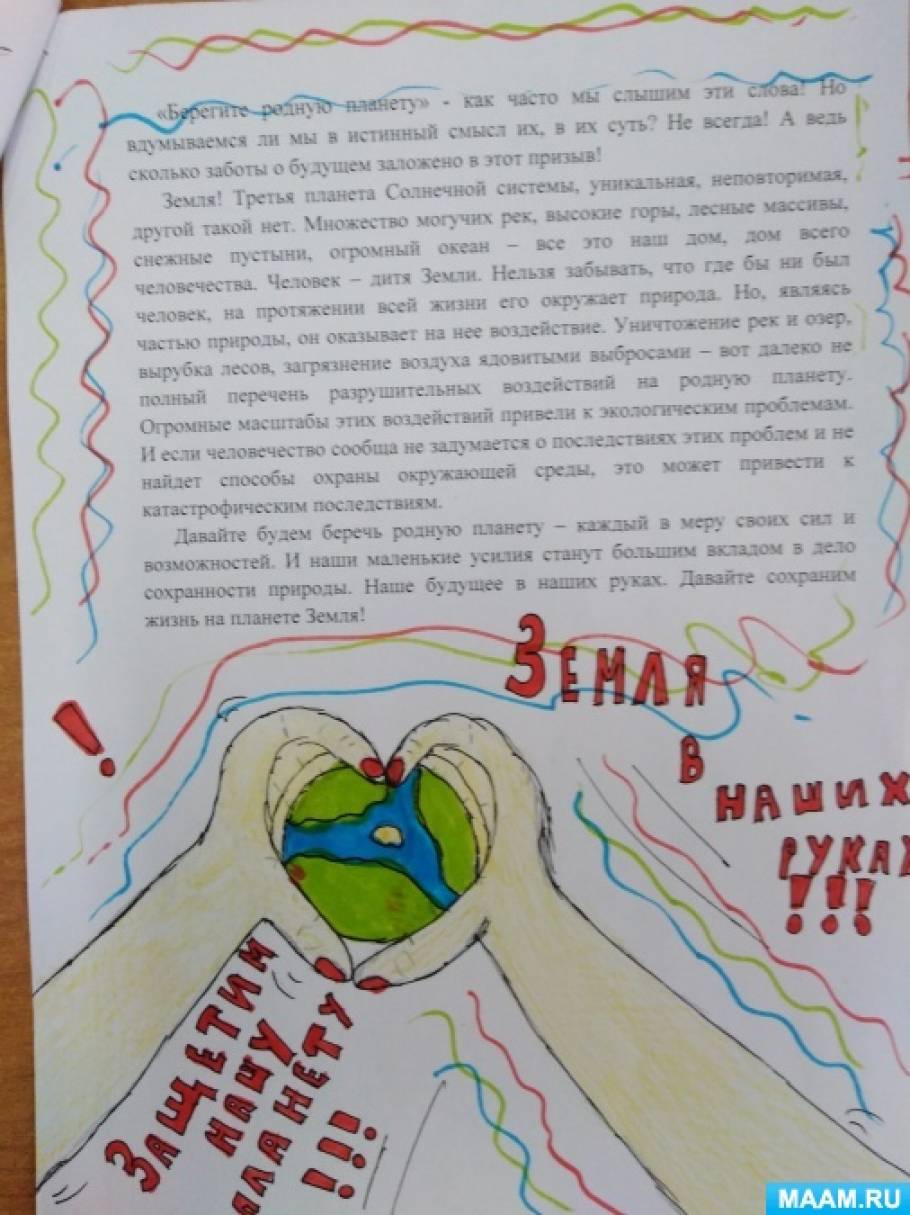 «Берегите родную планету» - как часто мы слышим эти слова! Но
вдумываемся ли мы в истинный смысл их, в их суть? Не всегда! А ведь
сколько заботы о будущем заложено в этот призыв!
Земля! Третья планета Солнечной системы, уникальная, неповторимая,
другой такой нет. Множество могучих рек, высокие горы, лесные массивы,
снежные пустыни, огромный океан – все это наш дом, дом всего
человечества. Человек – дитя Земли. Нельзя забывать, что где бы ни был
человек, на протяжении всей жизни его окружает природа. Но, являясь
частью природы, он оказывает на нее воздействие. Уничтожение рек и озер,
вырубка лесов, загрязнение воздуха ядовитыми выбросами – вот далеко не
полный перечень разрушительных воздействий на родную планету.
Огромные масштабы этих воздействий привели к экологическим проблемам.
И если человечество сообща не задумается о последствиях этих проблем и не
найдет способы охраны окружающей среды, это может привести к
катастрофическим последствиям.
Давайте будем беречь родную планету – каждый в меру своих сил и
возможностей. И наши маленькие усилия станут большим вкладом в дело
сохранности природы. Наше будущее в наших руках. Давайте сохраним
жизнь на планете Земля!
Земля
в
наших
руках
!!!
!
Защетим
нашу
планету
!!!
МААМ.RU